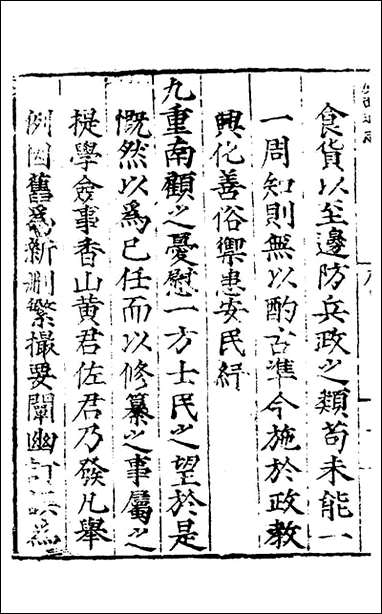 食貨以至邊防兵政之類苟未能一
一周知則無以酌古準今施於政敎
興化善俗禦患安民紓
九重南顧之憂慰一方士民之望於是
慨然以爲已任而以修纂之事屬之
提學僉事香山黄君佐君乃發凡舉
例因舊爲新刪繁撮要闡幽訂誤爲